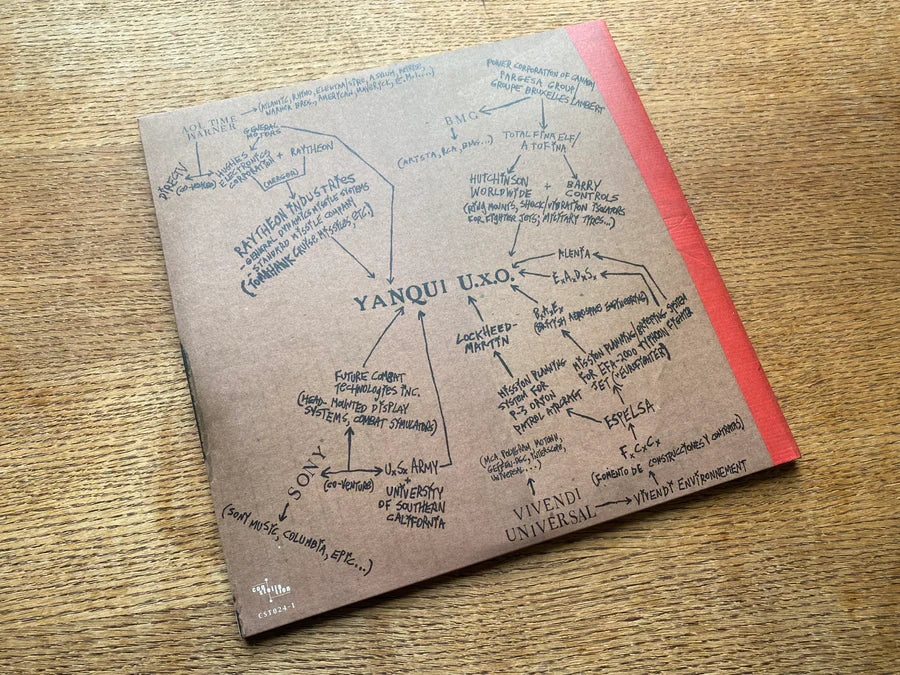 AOL TIME
WARNER
(ATLANTIC, RHINO, ELEKTRA/SIRE, ASYLUM,
WARNER BROS., AMERICAN, MAVERICK, E.M.I....)
GENERAL
MOTORS
DIRECTV
(CO-VENTURE)
HUGHES
ELECTRONICS
CORPORATION + RAYTHEON
(MERGER)
RAYTHEON INDUSTRIES
GENERAL DYNAMICS MISSILE SYSTEMS
- STANDARD MISSILE COMPANY
(TOMAHAWK CRUISE MISSILES, ETC.)
POWER CORPORATION OF CANADA/
PARGESA GROUP/
GROUPE BRUXELLES LAMBERT
BMG
(ARISTA, RCA, BMG...)
TOTAL FINA ELF/
ATOFINA
HUTCHINSON
WORLDWIDE
+
BARRY
CONTROLS
(RING MOUNTS, SHOCK/VIBRATION ISOLATORS
FOR FIGHTER JETS; MILITARY TIRES...)
ALENIA
E.A.D.S.
YANQUI U.X.O.
B.A.E.
(BRITISH AEROSPACE ENGINEERING)
LOCKHEED-
MARTIN
MISSION PLANNING/BRIEFING SYSTEM
FOR EFA-2000 TYPHOON FIGHTER
JET ("EUROFIGHTER)
MISSION PLANNING
SYSTEM FOR
P-3 ORION
PATROL AIRCRAFT
ESPELSA
F.C.C.
(FOMENTO DE CONSTRUCCIONES Y CONTRATAS)
VIVENDI ENVIRONNEMENT
(MCA, POLYGRAM, MOTOWN,
GEFFEN-DGC, INTERSCOPE,
UNIVERSAL...)
VIVENDI
UNIVERSAL
FUTURE COMBAT
TECHNOLOGIES INC.
(HEAD-MOUNTED DISPLAY
SYSTEMS, COMBAT SIMULATORS)
SONY
(CO-VENTURE)
U.S. ARMY
+
UNIVERSITY
OF SOUTHERN
CALIFORNIA
(SONY MUSIC, COLUMBIA, EPIC...)
constellation
CST024-1